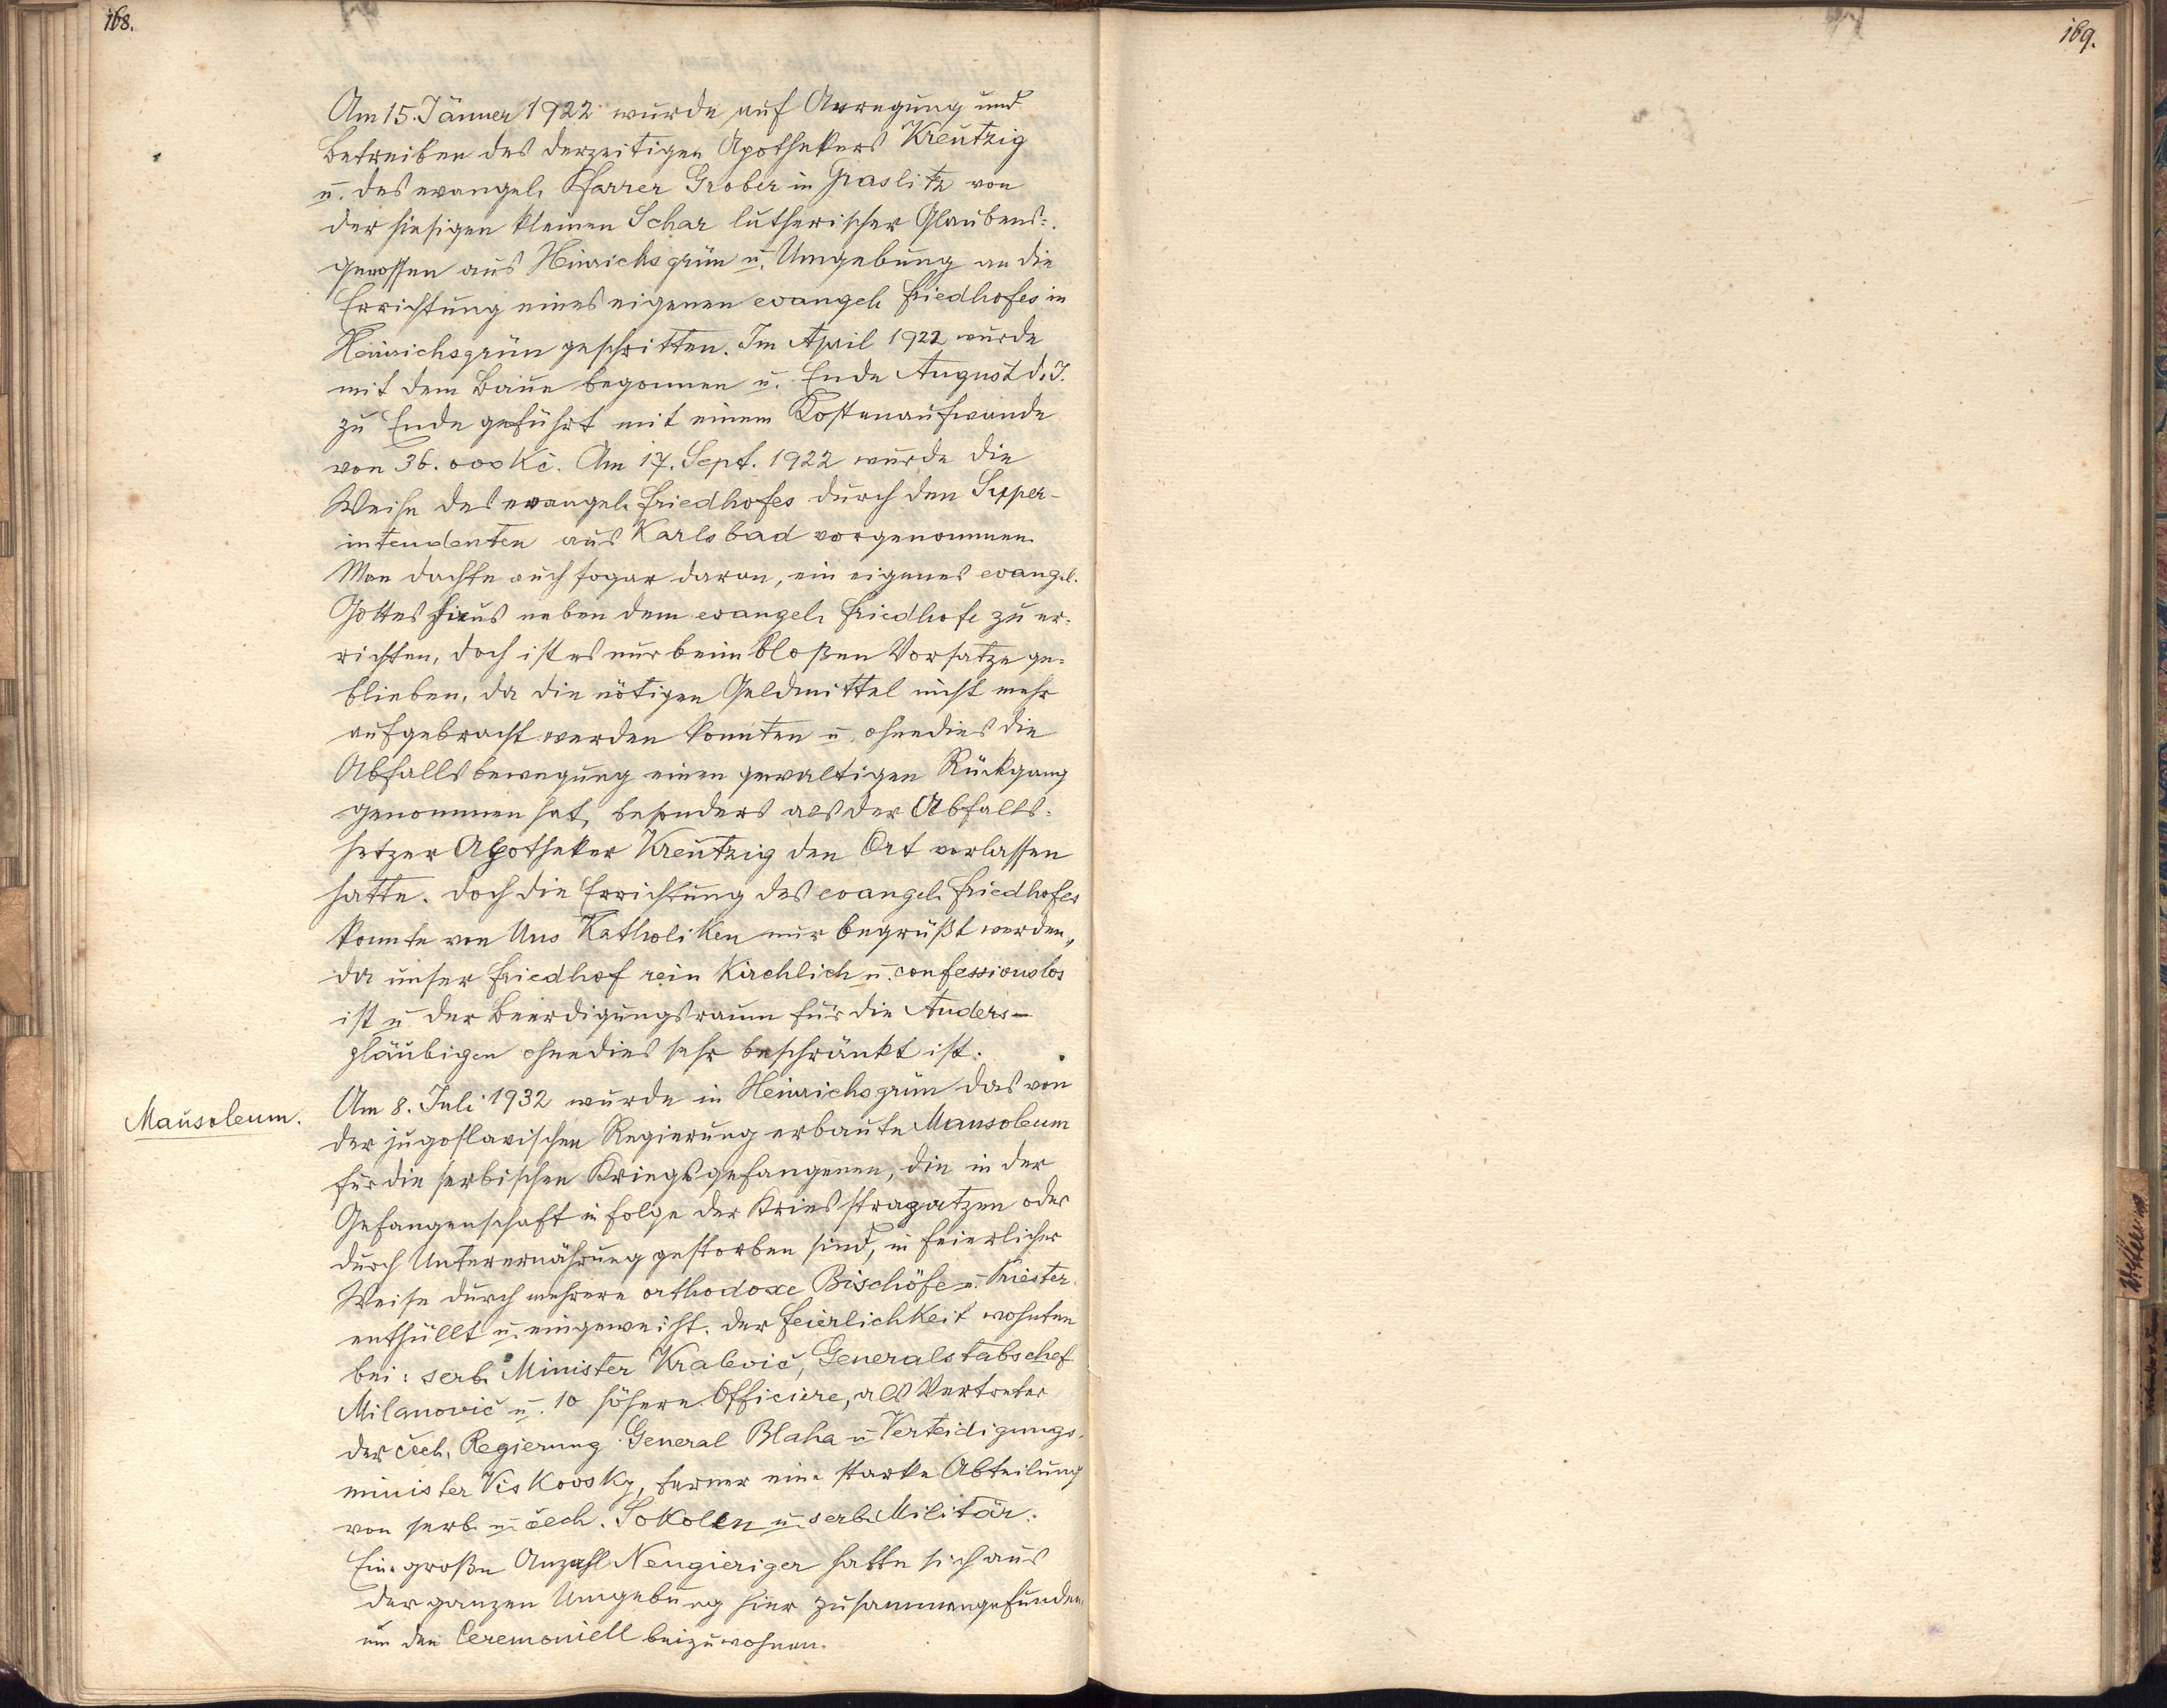 168.
169.
Am 15. Jänner 1922 wurde auf Anregung und
Betreiben des derzeitigen Apothekers Kreutzig
u. des evangel. Pfarrer Grober in Graslitz von
der hiesigen kleinen Schar lutherischer Glaubens=
genossen aus Heinrichsgrün u. Umgebung an die
Errichtung eines eigenen evangel. Friedhofes in
Heinrichsgrün geschritten. Im April 1922 wurde
mit dem Baue begonnen u. Ende August d. J.
zu Ende geführt mit einem Kostenaufwande
von 36.000 Kč. Am 17. Sept. 1922 wurde die
Weihe des evangel. Friedhofes durch den Super-
intendenten aus Karlsbad vorgenommen.
Man dachte auch sogar daran, ein eigenes evangel.
Gotteshaus neben dem evangel. Friedhofe zu er=
richten, doch ist es nur beim bloßen Vorsatze ge=
blieben, da die nötigen Geldmittel nicht mehr
aufgebracht werden konnten u. ohnedies die
Abfallsbewegung einen gewaltigen Rückgang
genommen hat, besonders als der Abfalls=
hetzer Apotheker Kreutzig den Ort verlassen
hatte. Doch die Errichtung des evangel. Friedhofes
konnte von Uns Katholiken nur begrüßt werden,
da unser Friedhof rein Kirchlich u. confessionslos
ist u. der Beerdigungsraum für die Anders-
gläubigen ohnedies sehr beschränkt ist.
Mausoleum.
Am 8. Juli 1932 wurde in Heinrichsgrün das von
der jugoslavischen Regierung erbaute Mausoleum
für die serbischen Kriegsgefangenen, die in der
Gefangenschaft in folge der Kriesstrapatzen oder
durch Unterernährung gestorben sind, in feierlicher
Weise durch mehrere orthodoxe Bischöfe u. Priester
enthüllt u. eingeweiht. Der Feierlichkeit wohnten
bei: serb. Minister Kralevič, Generalstabschef
Milanovič u. 10 höhere Officiere, als Vertreter
der čech. Regierung General Blaha u. Verteidigungs-
minister Viskovsky, ferner eine starke Abteilung
von serb. u. čech. Sokolen u. serb. Militär.
Eine große Anzahl Neugieriger hatte sich aus
der ganzen Umgebung hier zusammengefunden
um den Ceremoniell beizuwohnen.